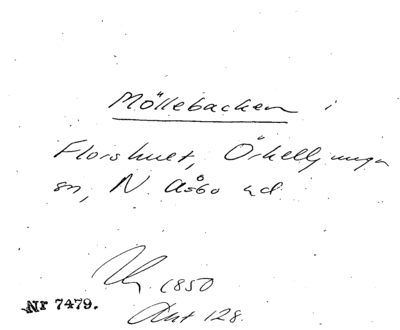 Möllebacken i
Florshult, Örkelljunga
sn, N. Åsbo hd.
1850
Nr 7479.
Ant 128.